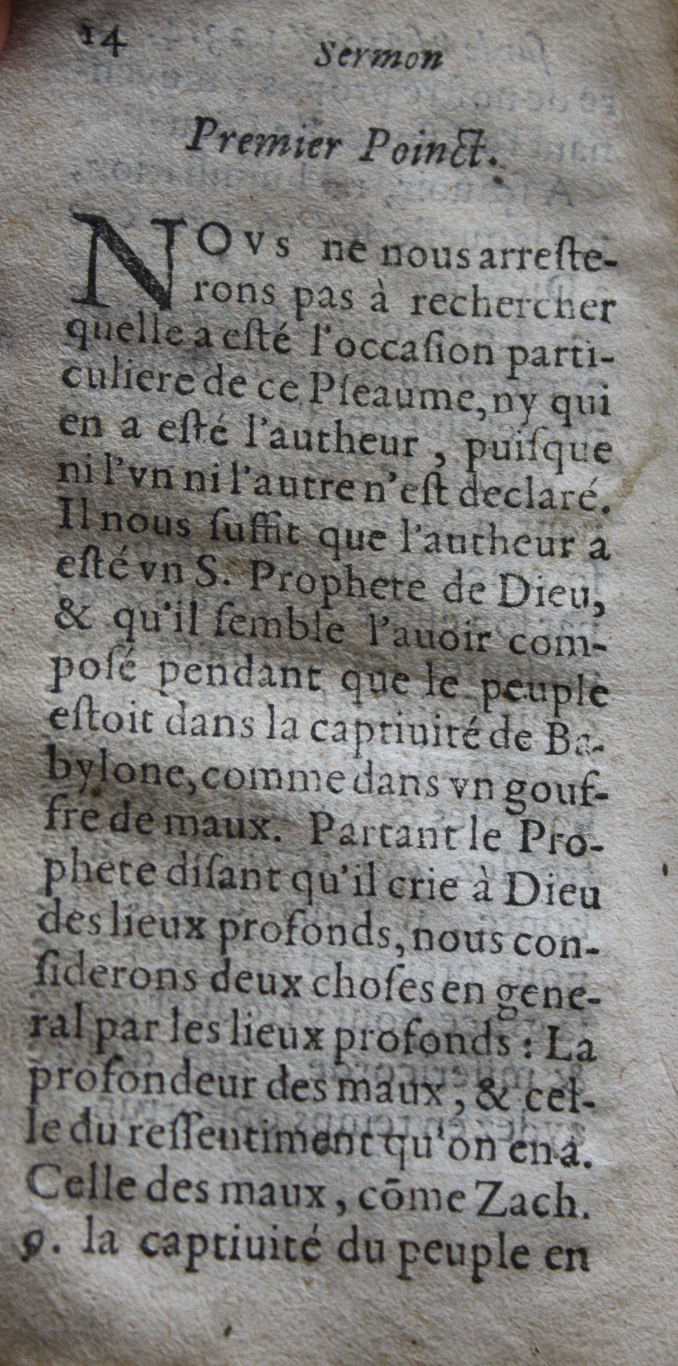 14 Sermon
Premier Poinct.
NOVS ne nous arreſte-
rons pas à rechercher
quelle a eſté l'occaſion parti-
culiere de ce Pſeaume, ny qui
en a eſté l'autheur, puiſque
ni l'vn ni l'autre n'eſt declaré.
Il nous ſuffit que l'autheur a
eſté vn S. Prophete de Dieu,
& qu'il ſemble l'auoir com-
poſé pendant que le peuple
eſtoit dans la captiuité de Ba-
bylone, comme dans vn gouf-
fre de maux. Partant le Pro-
phete diſant qu'il crie à Dieu
des lieux profonds, nous con-
ſiderons deux choſes en gene-
ral par les lieux profonds : La
profondeur des maux, & cel-
le du reſſentiment qu'on en a.
Celle des maux, cōme Zach.
9. la captiuité du peuple en